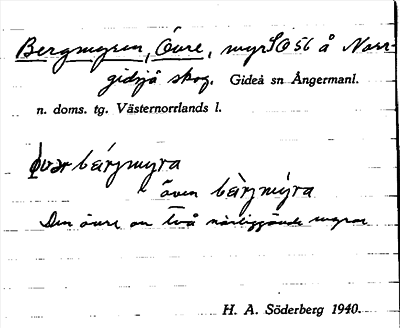 Bergmyren, Övre, myr SO 56 å Norr-
gidsjö skog. Gideå sn Ångermanl.
n. doms. tg. Västernorrlands l.
bárjmyra
även bàrjmýra
Den övre av två närliggande myrar
H. A. Söderberg 1940.